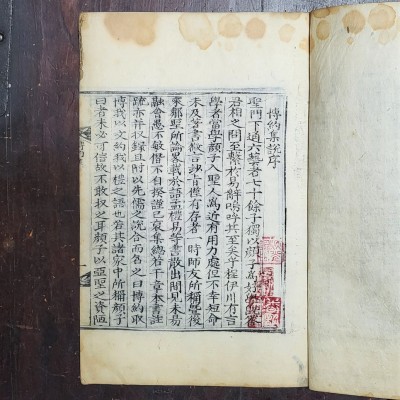 博約集說序
聖門下通六藝者七十餘子獨以顏子爲好
君相之問至繫於易辭嗚呼其至矣乎程伊川有言
學者當學顏子入聖人爲近有用力處但不幸短命
未及著書散言妙旨僅有存者一時師友所稱譽後
來鄒聖所論畧載於語孟禮易等書散出間見未易
融會愚不敏僭不自揆謹已裒集總若干章本書註
疏亦幷收錄且附以先儒之說合而名之曰博約取
博我以文約我以禮之語也若其諸家中所稱顏子
曰者未必可信故不敢取之耳顏子以亞聖之資陋